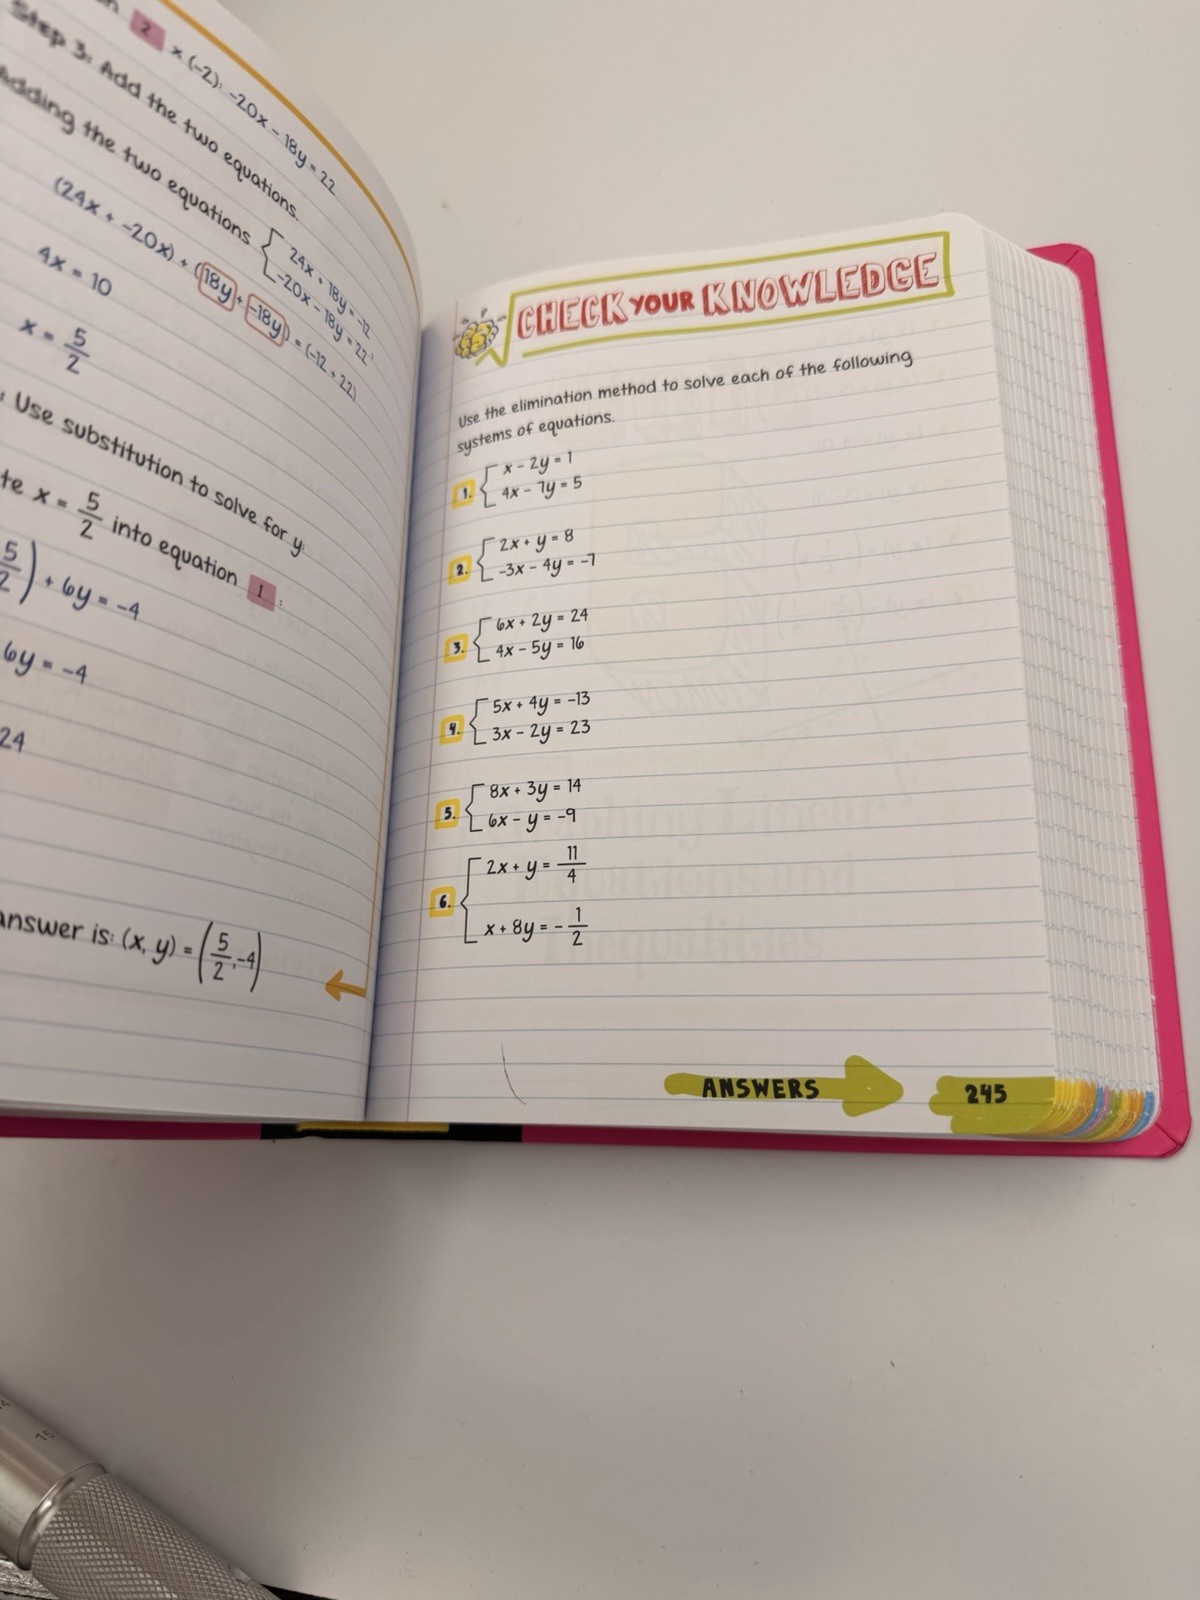 2 x (-2): -20x - 18y = 22
Step 3: Add the two equations.
Adding the two equations { 24x + 18y = -12
-20x - 18y = 22 :
(24x + -20x) + (18y + -18y) = (-12 + 22)
4x = 10
x = 5/2
: Use substitution to solve for y:
te x = 5/2 into equation 1 :
5/2) + 6y = -4
6y = -4
24
answer is: (x, y) = (5/2, -4)
CHECK YOUR KNOWLEDGE
Use the elimination method to solve each of the following
systems of equations.
1. { x - 2y = 1
4x - 7y = 5
2. { 2x + y = 8
-3x - 4y = -7
3. { 6x + 2y = 24
4x - 5y = 16
4. { 5x + 4y = -13
3x - 2y = 23
5. { 8x + 3y = 14
6x - y = -9
6. { 2x + y = 11/4
x + 8y = -1/2
ANSWERS
245
15